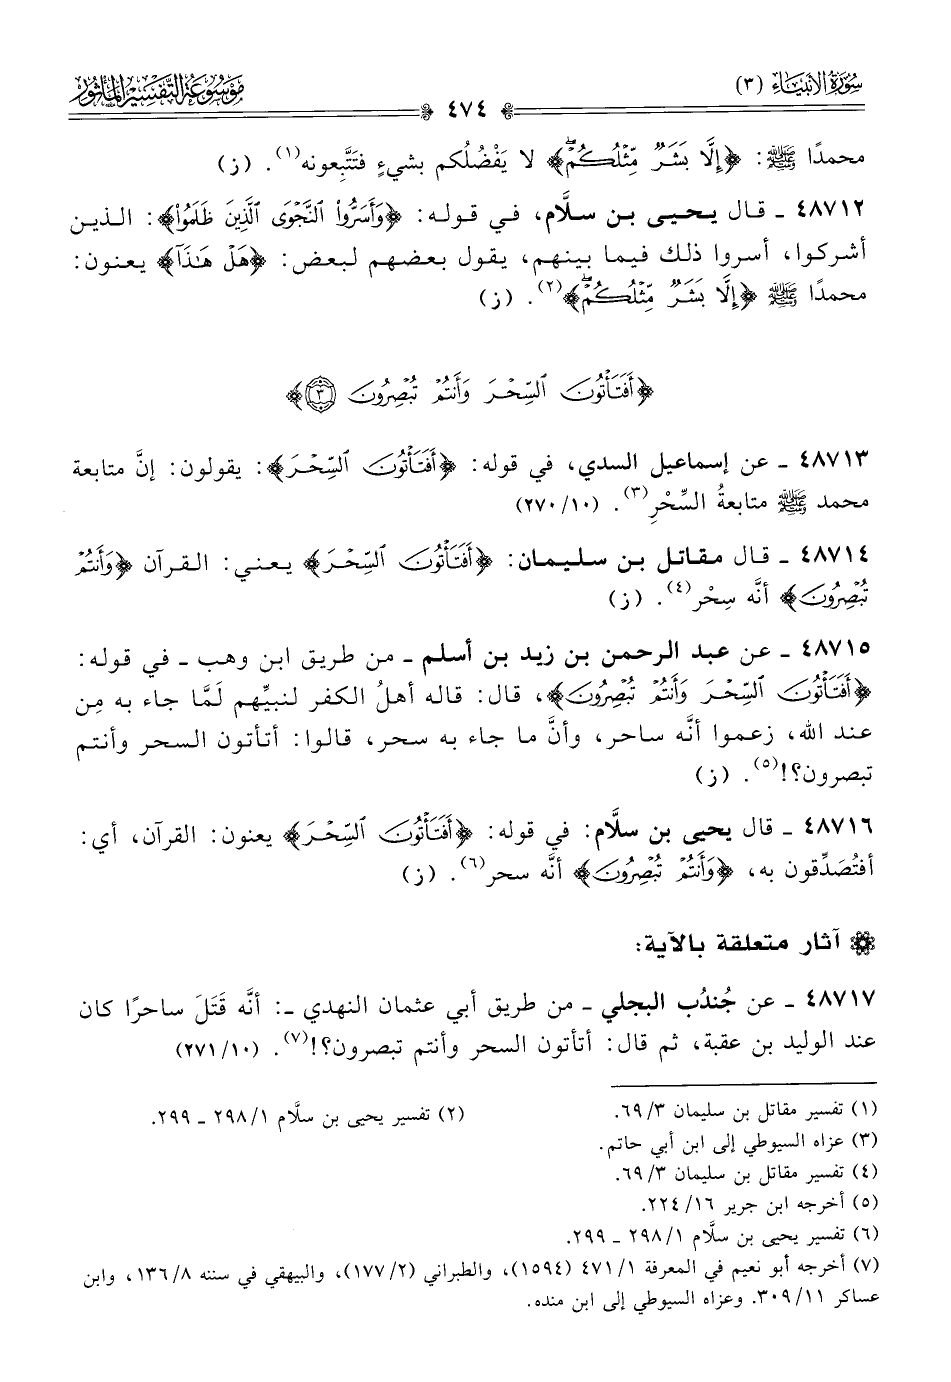 سُورَةُ الأَنبيَاء (٣)
٤٧٤
مَوْسُوعَة التَّفْسِيْر المَأثُور
محمدًا ﷺ: ﴿إِلَّا بَشَرٌ مِّثْلُكُمْۖ﴾ لا يَفْضُلُكم بشيءٍ فتَتَّبِعونه(١). (ز)
٤٨٧١٢ ـ قال يحيى بن سلَّام، في قوله: ﴿وَأَسَرُّواْ النَّجْوَى الَّذِينَ ظَلَمُواْ﴾: الذين
أشركوا، أسروا ذلك فيما بينهم، يقول بعضهم لبعض: ﴿هَلْ هَٰذَآ﴾ يعنون:
محمدًا ﷺ ﴿إِلَّا بَشَرٌ مِّثْلُكُمْۖ﴾(٢). (ز)
﴿أَفَتَأْتُونَ السِّحْرَ وَأَنتُمْ تُبْصِرُونَ ٣﴾
٤٨٧١٣ ـ عن إسماعيل السدي، في قوله: ﴿أَفَتَأْتُونَ السِّحْرَ﴾: يقولون: إنَّ متابعة
محمد ﷺ متابعةُ السِّحْرِ(٣). (١٠/ ٢٧٠)
٤٨٧١٤ ـ قال مقاتل بن سليمان: ﴿أَفَتَأْتُونَ السِّحْرَ﴾ يعني: القرآن ﴿وَأَنتُمْ
تُبْصِرُونَ﴾ أنَّه سِحْر(٤). (ز)
٤٨٧١٥ ـ عن عبد الرحمن بن زيد بن أسلم ـ من طريق ابن وهب ـ في قوله:
﴿أَفَتَأْتُونَ السِّحْرَ وَأَنتُمْ تُبْصِرُونَ﴾، قال: قاله أهلُ الكفر لنبيِّهم لَمَّا جاء به مِن
عند الله، زعموا أنَّه ساحر، وأنَّ ما جاء به سحر، قالوا: أتأتون السحر وأنتم
تبصرون؟!(٥). (ز)
٤٨٧١٦ ـ قال يحيى بن سلَّام: في قوله: ﴿أَفَتَأْتُونَ السِّحْرَ﴾ يعنون: القرآن، أي:
أفتُصَدِّقون به، ﴿وَأَنتُمْ تُبْصِرُونَ﴾ أنَّه سحر(٦). (ز)
آثار متعلقة بالآية:
٤٨٧١٧ ـ عن جُندُب البجلي ـ من طريق أبي عثمان النهدي ـ: أنَّه قَتَلَ ساحرًا كان
عند الوليد بن عقبة، ثم قال: أتأتون السحر وأنتم تبصرون؟!(٧). (١٠/ ٢٧١)
(١) تفسير مقاتل بن سليمان ٣/ ٦٩.
(٢) تفسير يحيى بن سلَّام ١/ ٢٩٨ ـ ٢٩٩.
(٣) عزاه السيوطي إلى ابن أبي حاتم.
(٤) تفسير مقاتل بن سليمان ٣/ ٦٩.
(٥) أخرجه ابن جرير ١٦/ ٢٢٤.
(٦) تفسير يحيى بن سلَّام ١/ ٢٩٨ ـ ٢٩٩.
(٧) أخرجه أبو نعيم في المعرفة ١/ ٤٧١ (١٥٩٤)، والطبراني (٢/ ١٧٧)، والبيهقي في سننه ٨/ ١٣٦، وابن
عساكر ١١/ ٣٠٩. وعزاه السيوطي إلى ابن منده.